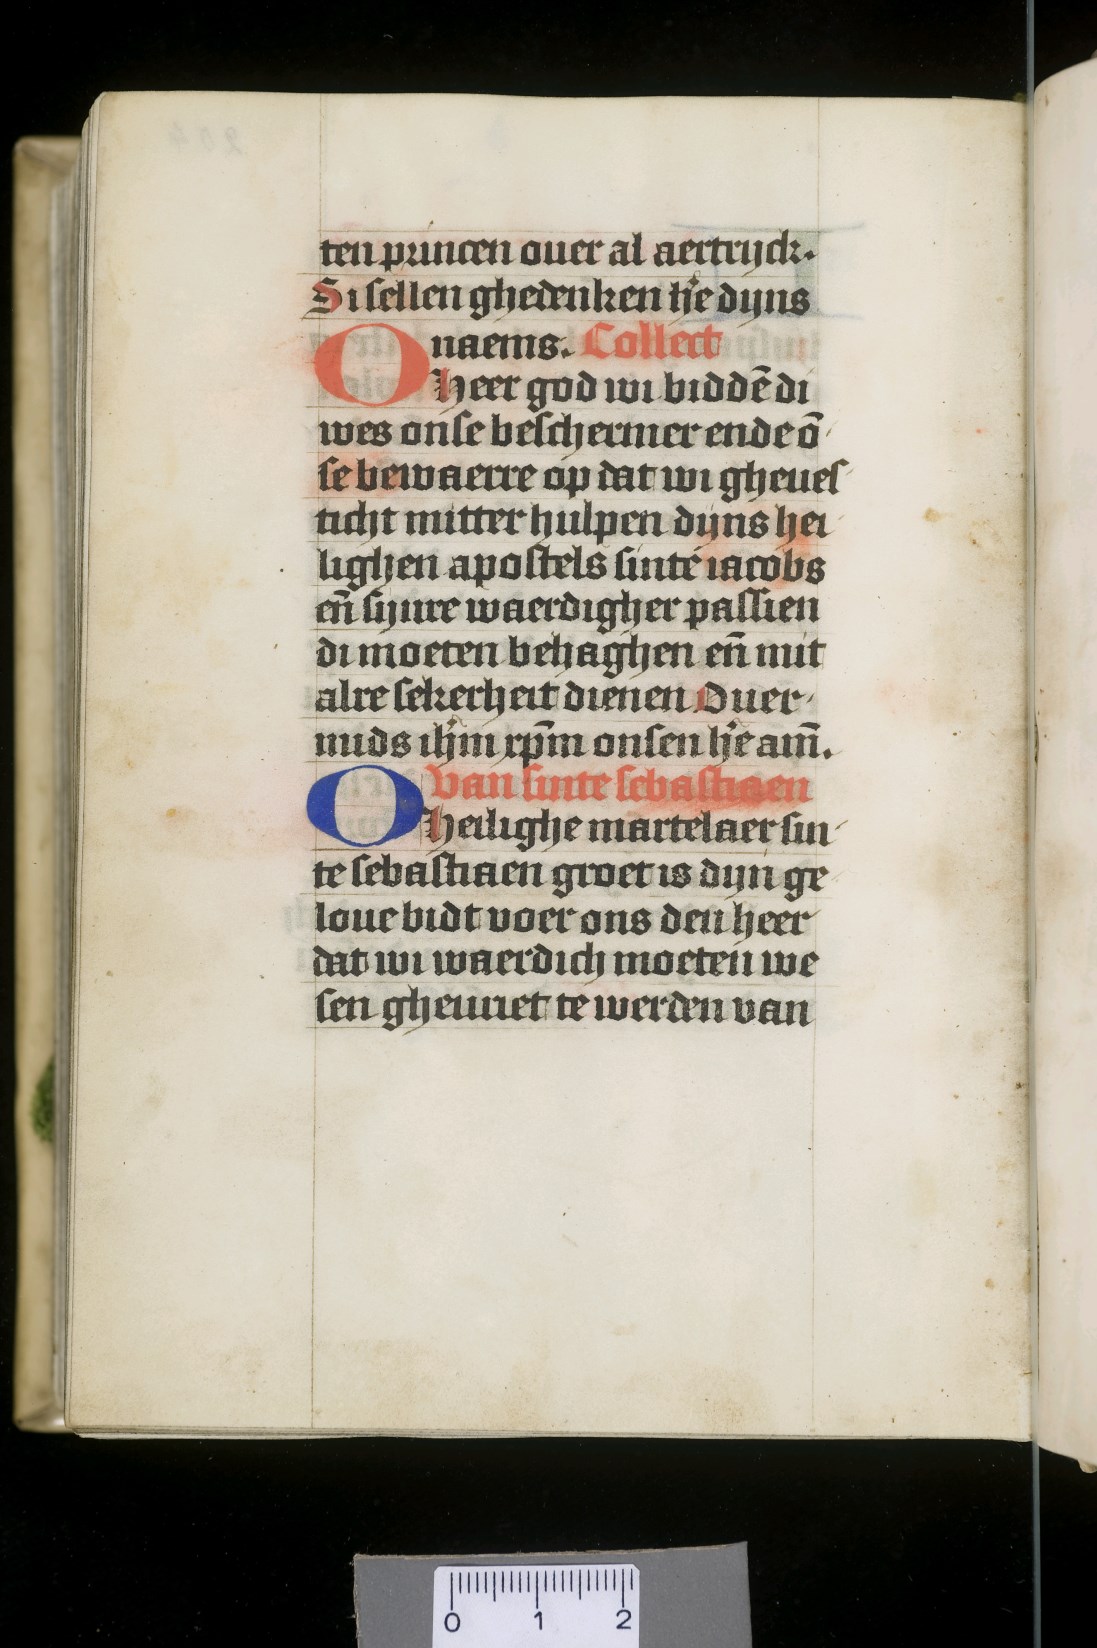 ten princen ouer al aertrijck.
Si sellen ghedenken he᷒e dijns
naems. Collect
O Heer god wi biddē di
wes onse beschermer ende ō
se bewaerre op dat wi gheues
ticht mitter hulpen dijns hei
lighen apostels sinte iacobs
en̄ sijnre waerdigher passien
di moeten behaghen en̄ mit
alre sekerheit dienen Ouer
mids ihm̄ xpm̄ onsen hē am̄.
van sinte sebastiaen
O Heilighe martelaer sin
te sebastiaen groet is dijn ge
loue bidt voer ons den heer
dat wi waerdich moeten we
sen ghevriet te werden van
0 1 2